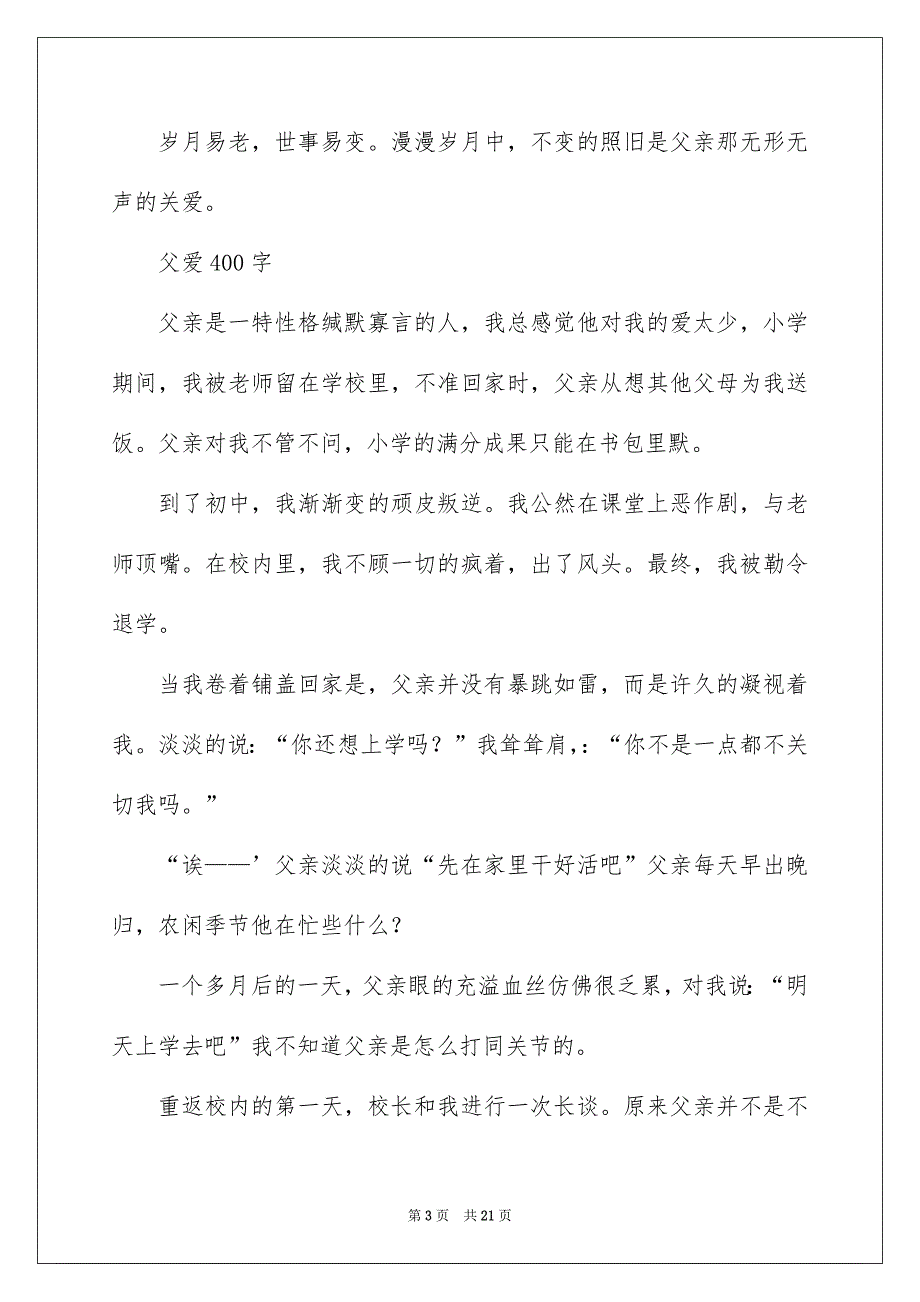 岁月易老，世事易变。漫漫岁月中，不变的照旧是父亲那无形无
声的关爱。
父爱 400 字
父亲是一特性格缄默寡言的人，我总感觉他对我的爱太少，小学
期间，我被老师留在学校里，不准回家时，父亲从想其他父母为我送
饭。父亲对我不管不问，小学的满分成果只能在书包里默。
到了初中，我渐渐变的顽皮叛逆。我公然在课堂上恶作剧，与老
师顶嘴。在校内里，我不顾一切的疯着，出了风头。最终，我被勒令
退学。
当我卷着铺盖回家是，父亲并没有暴跳如雷，而是许久的凝视着
我。淡淡的说：“你还想上学吗？”我耸耸肩，：“你不是一点都不关
切我吗。”
“诶——’父亲淡淡的说“先在家里干好活吧”父亲每天早出晚
归，农闲季节他在忙些什么？
一个多月后的一天，父亲眼的充溢血丝仿佛很乏累，对我说：“明
天上学去吧”我不知道父亲是怎么打同关节的。
重返校内的第一天，校长和我进行一次长谈。原来父亲并不是不
第 3 页 共 21 页